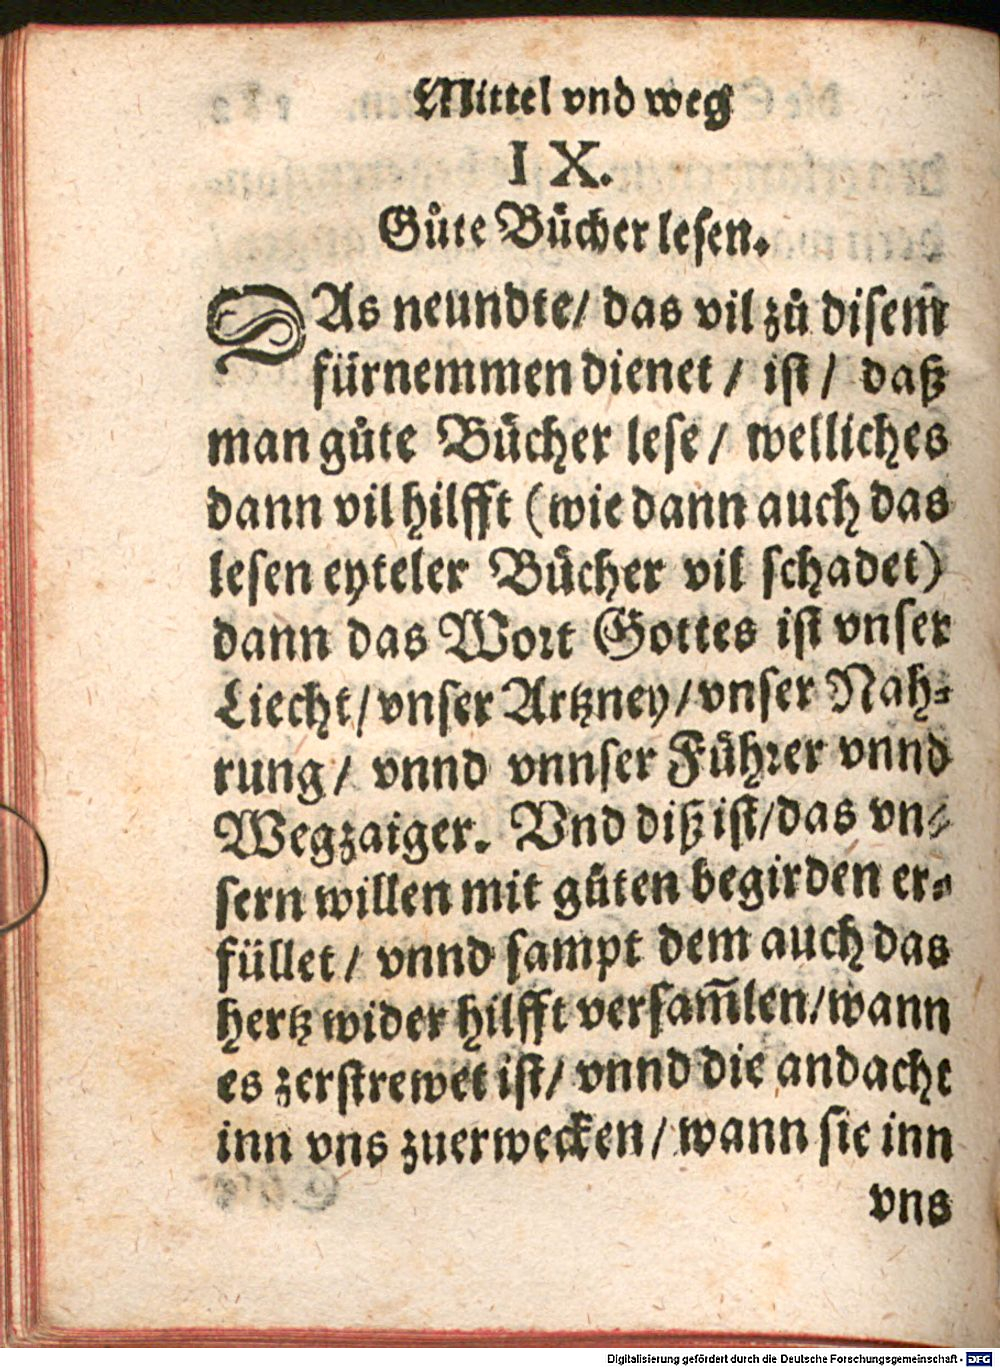 Mittel vnd weg
IX.
Gůte Bücher lesen.
DAs neundte/ das vil zů disem
fürnemmen dienet / ist / daß
man gůte Bücher lese / welliches
dann vil hilfft (wie dann auch das
lesen eyteler Bücher vil schadet)
dann das Wort Gottes ist vnser
Liecht / vnser Artzney / vnser Nah⸗
rung / vnnd vnnser Führer vnnd
Wegzaiger. Vnd diß ist/das vn⸗
sern willen mit gůten begirden er⸗
füllet / vnnd sampt dem auch das
hertz wider hilfft versam̃len/wann
es zerstrewet ist/ vnnd die andacht
inn vns zuerwecken / wann sie inn
vns
Digitalisierung gefördert durch die Deutsche Forschungsgemeinschaft - DFG